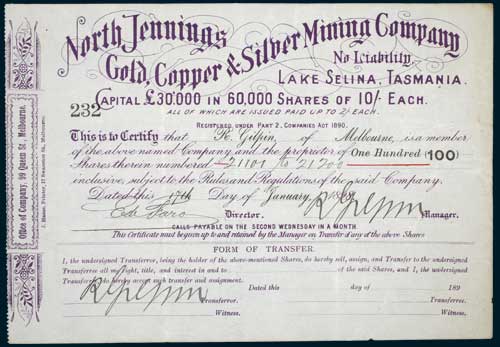 North Jennings
Gold, Copper & Silver Mining Company
No Liability
LAKE SELINA, TASMANIA.
232
CAPITAL £30,000 IN 60,000 SHARES OF 10/- EACH.
ALL OF WHICH ARE ISSUED PAID UP TO 2/- EACH.
REGISTERED UNDER PART 2, COMPANIES ACT 1890.
This is to Certify that R. Gilpin, of Melbourne, is a member
of the above named Company and the proprietor of One Hundred (100)
Shares therein numbered 21101 to 21200
inclusive, subject to the Rules and Regulations of the said Company.
Dated this 17th Day of January
Director. R Gilpin Manager.
CALLS PAYABLE ON THE SECOND WEDNESDAY IN A MONTH.
This Certificate must be given up to and retained by the Manager on Transfer of any of the above Shares
FORM OF TRANSFER.
I, the undersigned Transferor, being the holder of the above-mentioned Shares, do hereby sell, assign, and Transfer to the undersigned
Transferee all my right, title, and interest in and to of the said Shares, and I, the undersigned
Transferee, do hereby accept such transfer and assignment.
R Gilpin Dated this day of 189
Transferror. Transferree.
Witness. Witness.
Office of Company, 99 Queen St., Melbourne.